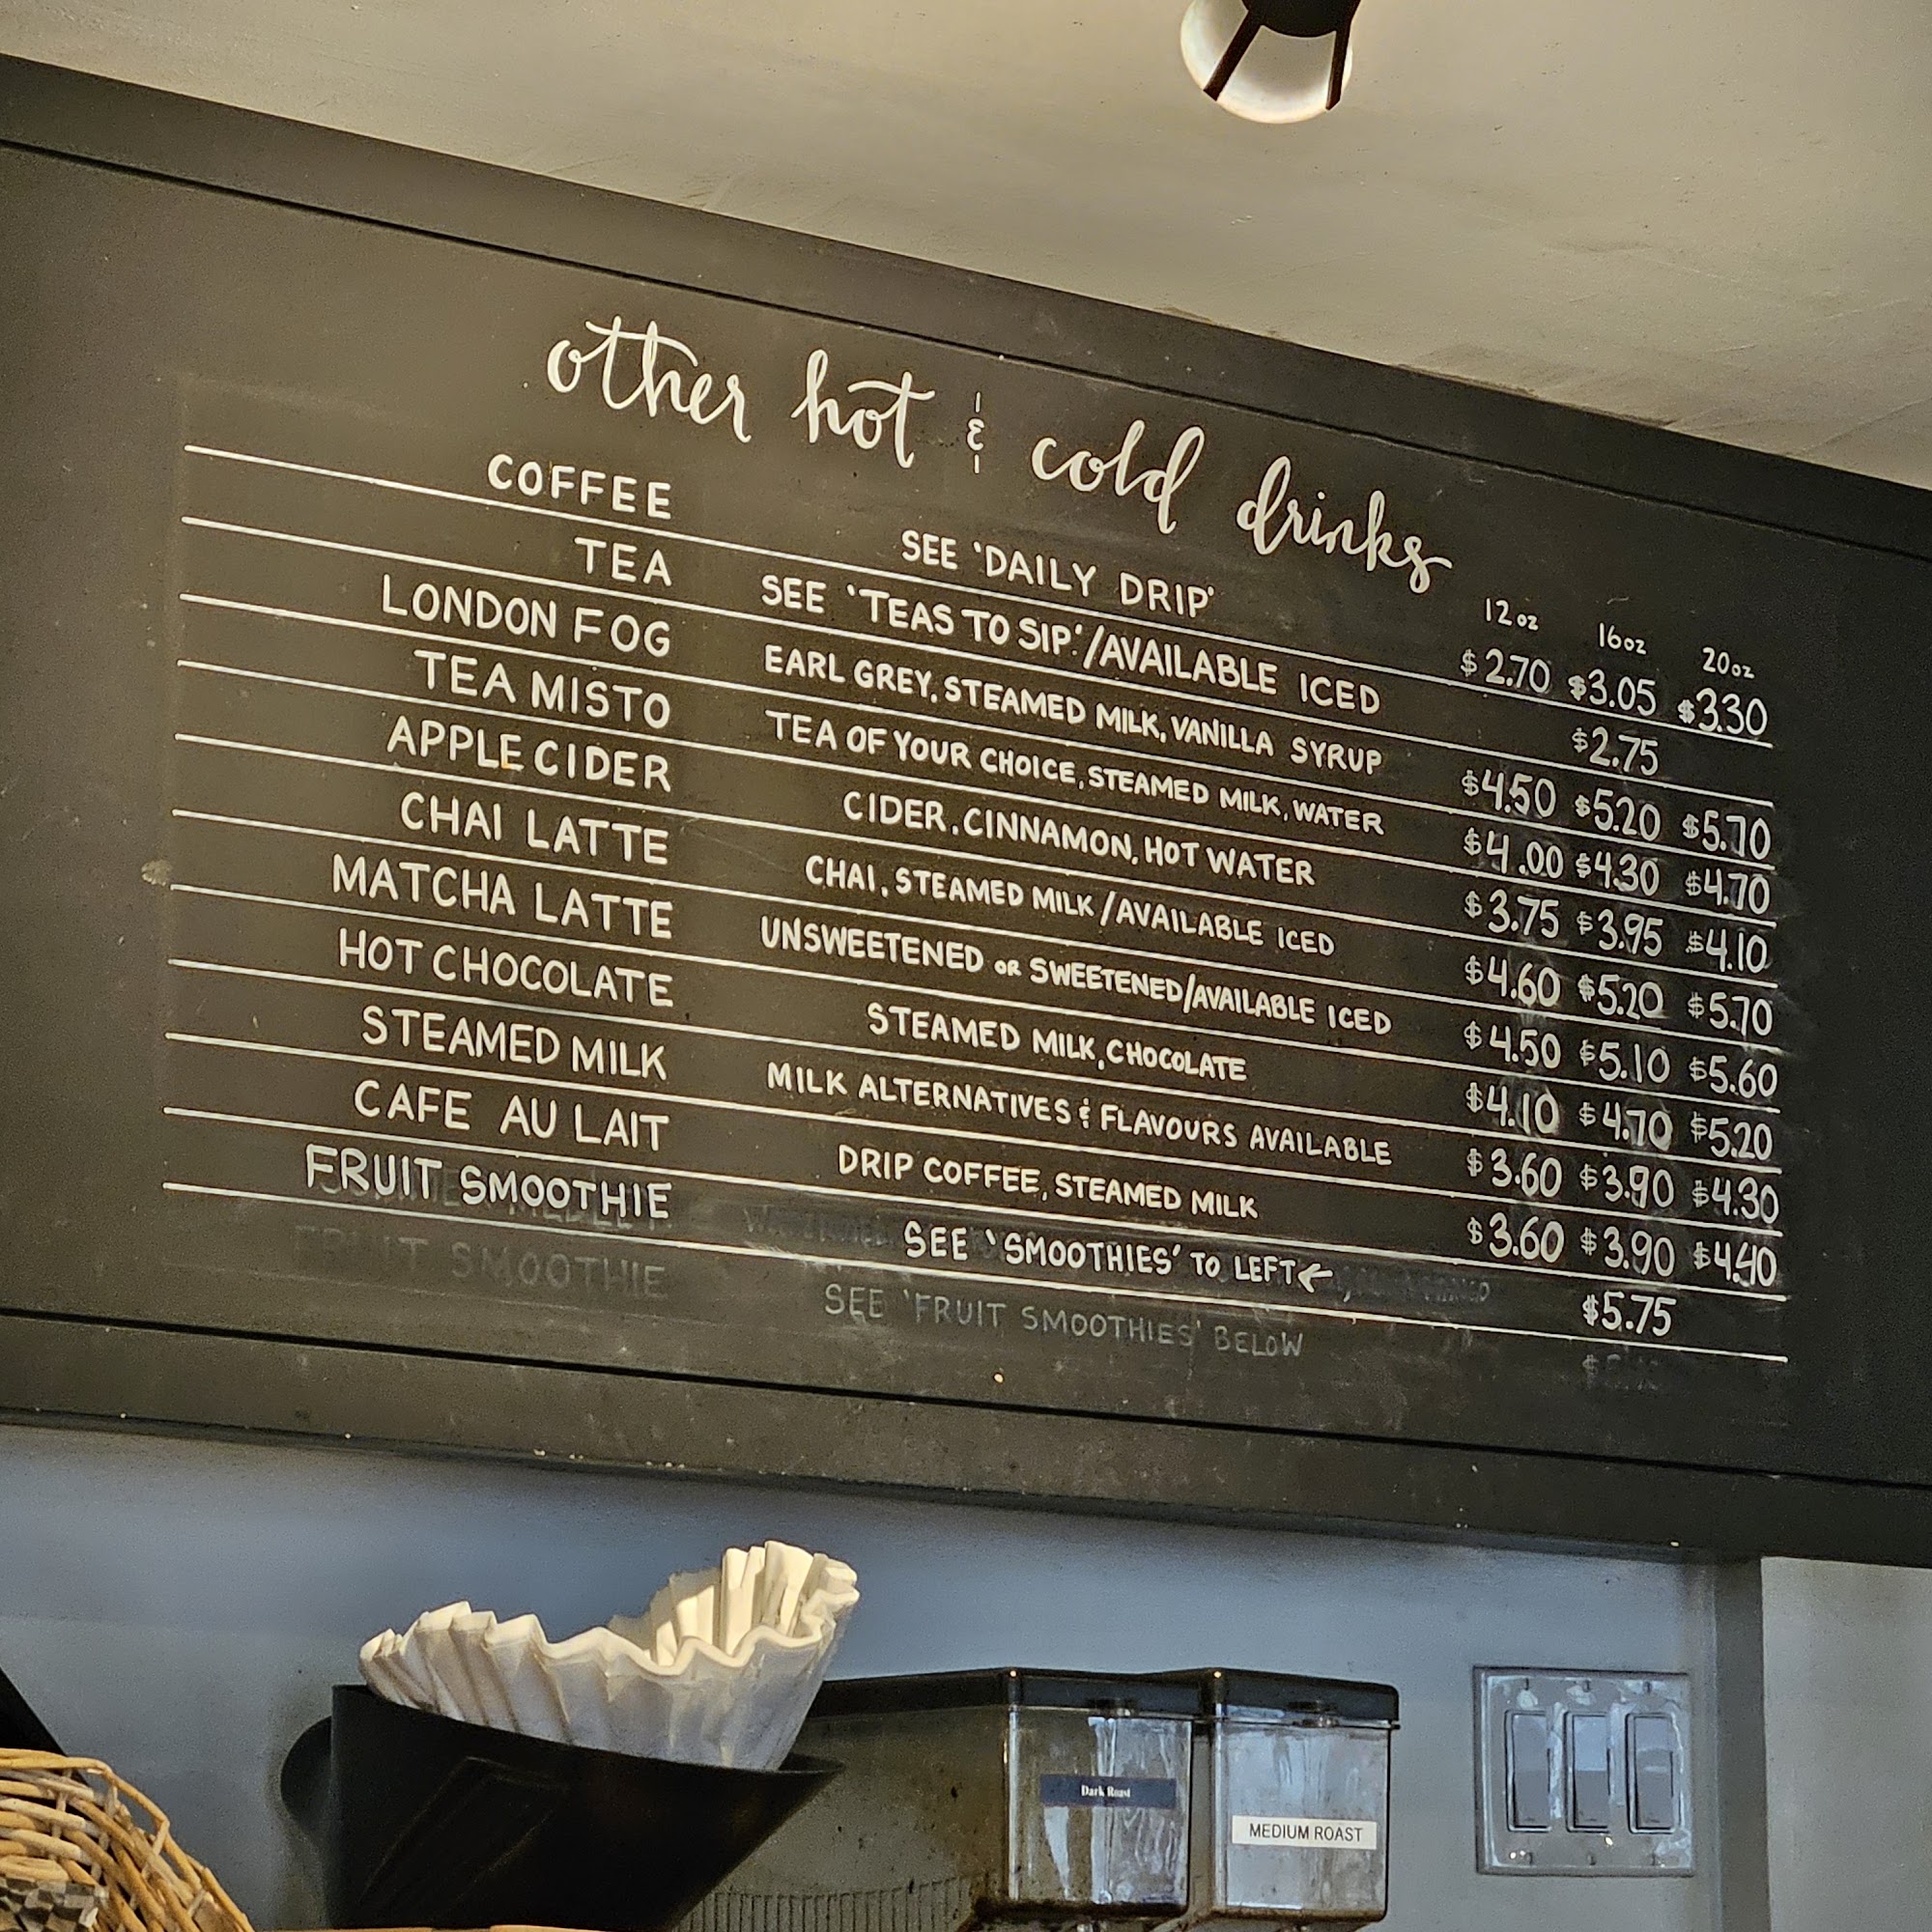 other hot & cold drinks
12oz 16oz 20oz
COFFEE SEE 'DAILY DRIP' $2.70 $3.05 $3.30
TEA SEE 'TEAS TO SIP'/AVAILABLE ICED $2.75
LONDON FOG EARL GREY, STEAMED MILK, VANILLA SYRUP $4.50 $5.20 $5.70
TEA MISTO TEA OF YOUR CHOICE, STEAMED MILK, WATER $4.00 $4.30 $4.70
APPLE CIDER CIDER, CINNAMON, HOT WATER $3.75 $3.95 $4.10
CHAI LATTE CHAI, STEAMED MILK/AVAILABLE ICED $4.60 $5.20 $5.70
MATCHA LATTE UNSWEETENED OR SWEETENED/AVAILABLE ICED $4.50 $5.10 $5.60
HOT CHOCOLATE STEAMED MILK, CHOCOLATE $4.10 $4.70 $5.20
STEAMED MILK MILK ALTERNATIVES & FLAVOURS AVAILABLE $3.60 $3.90 $4.30
CAFE AU LAIT DRIP COFFEE, STEAMED MILK $3.60 $3.90 $4.40
FRUIT SMOOTHIE SEE 'SMOOTHIES' TO LEFT← $5.75
FRUIT SMOOTHIE SEE 'FRUIT SMOOTHIES' BELOW
Dark Roast
MEDIUM ROAST